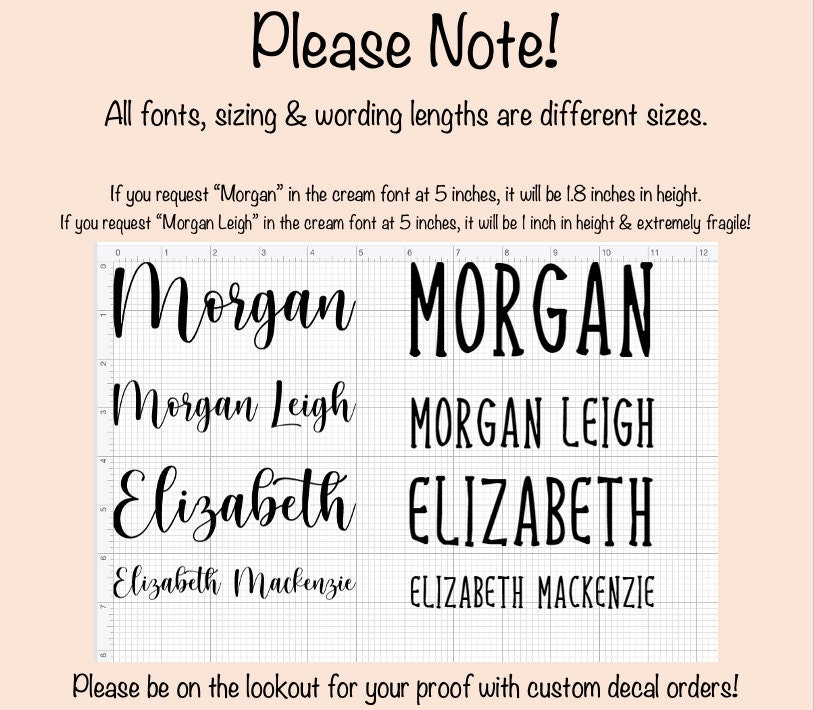 Please Note!
All fonts, sizing & wording lengths are different sizes.
If you request “Morgan” in the cream font at 5 inches, it will be 1.8 inches in height.
If you request “Morgan Leigh” in the cream font at 5 inches, it will be 1 inch in height & extremely fragile!
0 1 2 3 4 5 6 7 8 9 10 11 12
0
Morgan MORGAN
1
2
Morgan Leigh MORGAN LEIGH
3
4
Elizabeth ELIZABETH
5
6
Elizabeth Mackenzie ELIZABETH MACKENZIE
7
8
Please be on the lookout for your proof with custom decal orders!